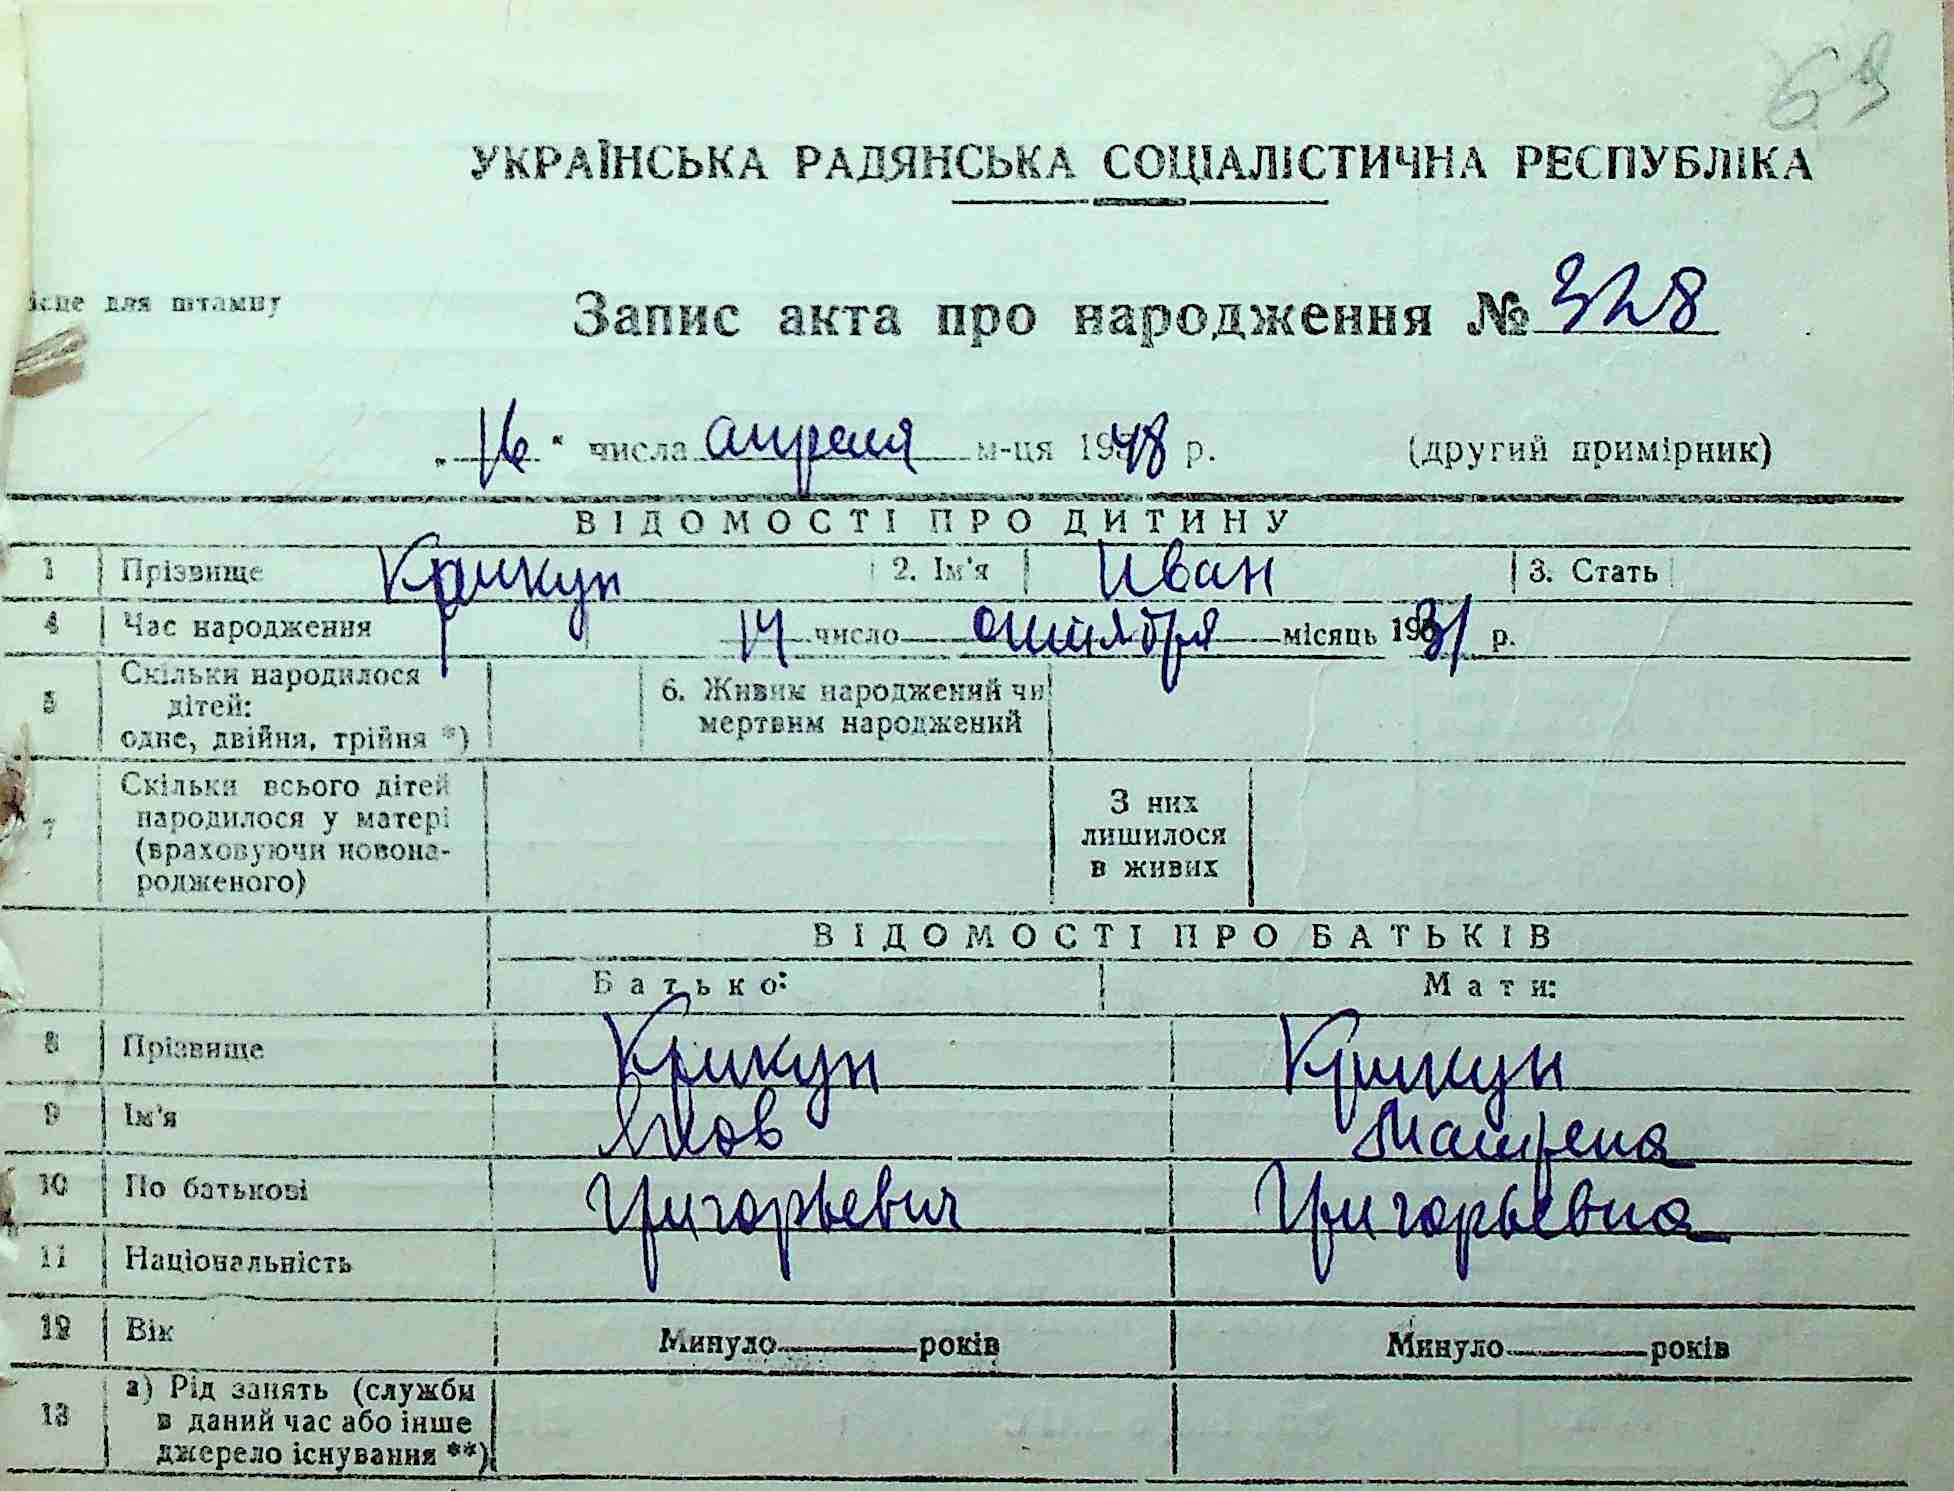 69
УКРАЇНСЬКА РАДЯНСЬКА СОЦІАЛІСТИЧНА РЕСПУБЛІКА
ісце для штампу
Запис акта про народження № 328
„ 16 " числа апреля м-ця 1948 р. (другий примірник)
ВІДОМОСТІ ПРО ДИТИНУ
1 Прізвище Крикун 2. Ім'я Иван 3. Стать
4 Час народження 14 число октября місяць 1931 р.
5 Скільки народилося
дітей:
одне, двійня, трійня *)
6. Живим народжений чи
мертвим народжений
7 Скільки всього дітей
народилося у матері
(враховуючи новона-
родженого)
З них
лишилося
в живих
ВІДОМОСТІ ПРО БАТЬКІВ
Батько: Мати:
8 Прізвище Крикун Крикун
9 Ім'я Яков Матрена
10 По батькові Григорьевич Григорьевна
11 Національність
12 Вік Минуло років Минуло років
13 а) Рід занять (служби
в даний час або інше
джерело існування **)